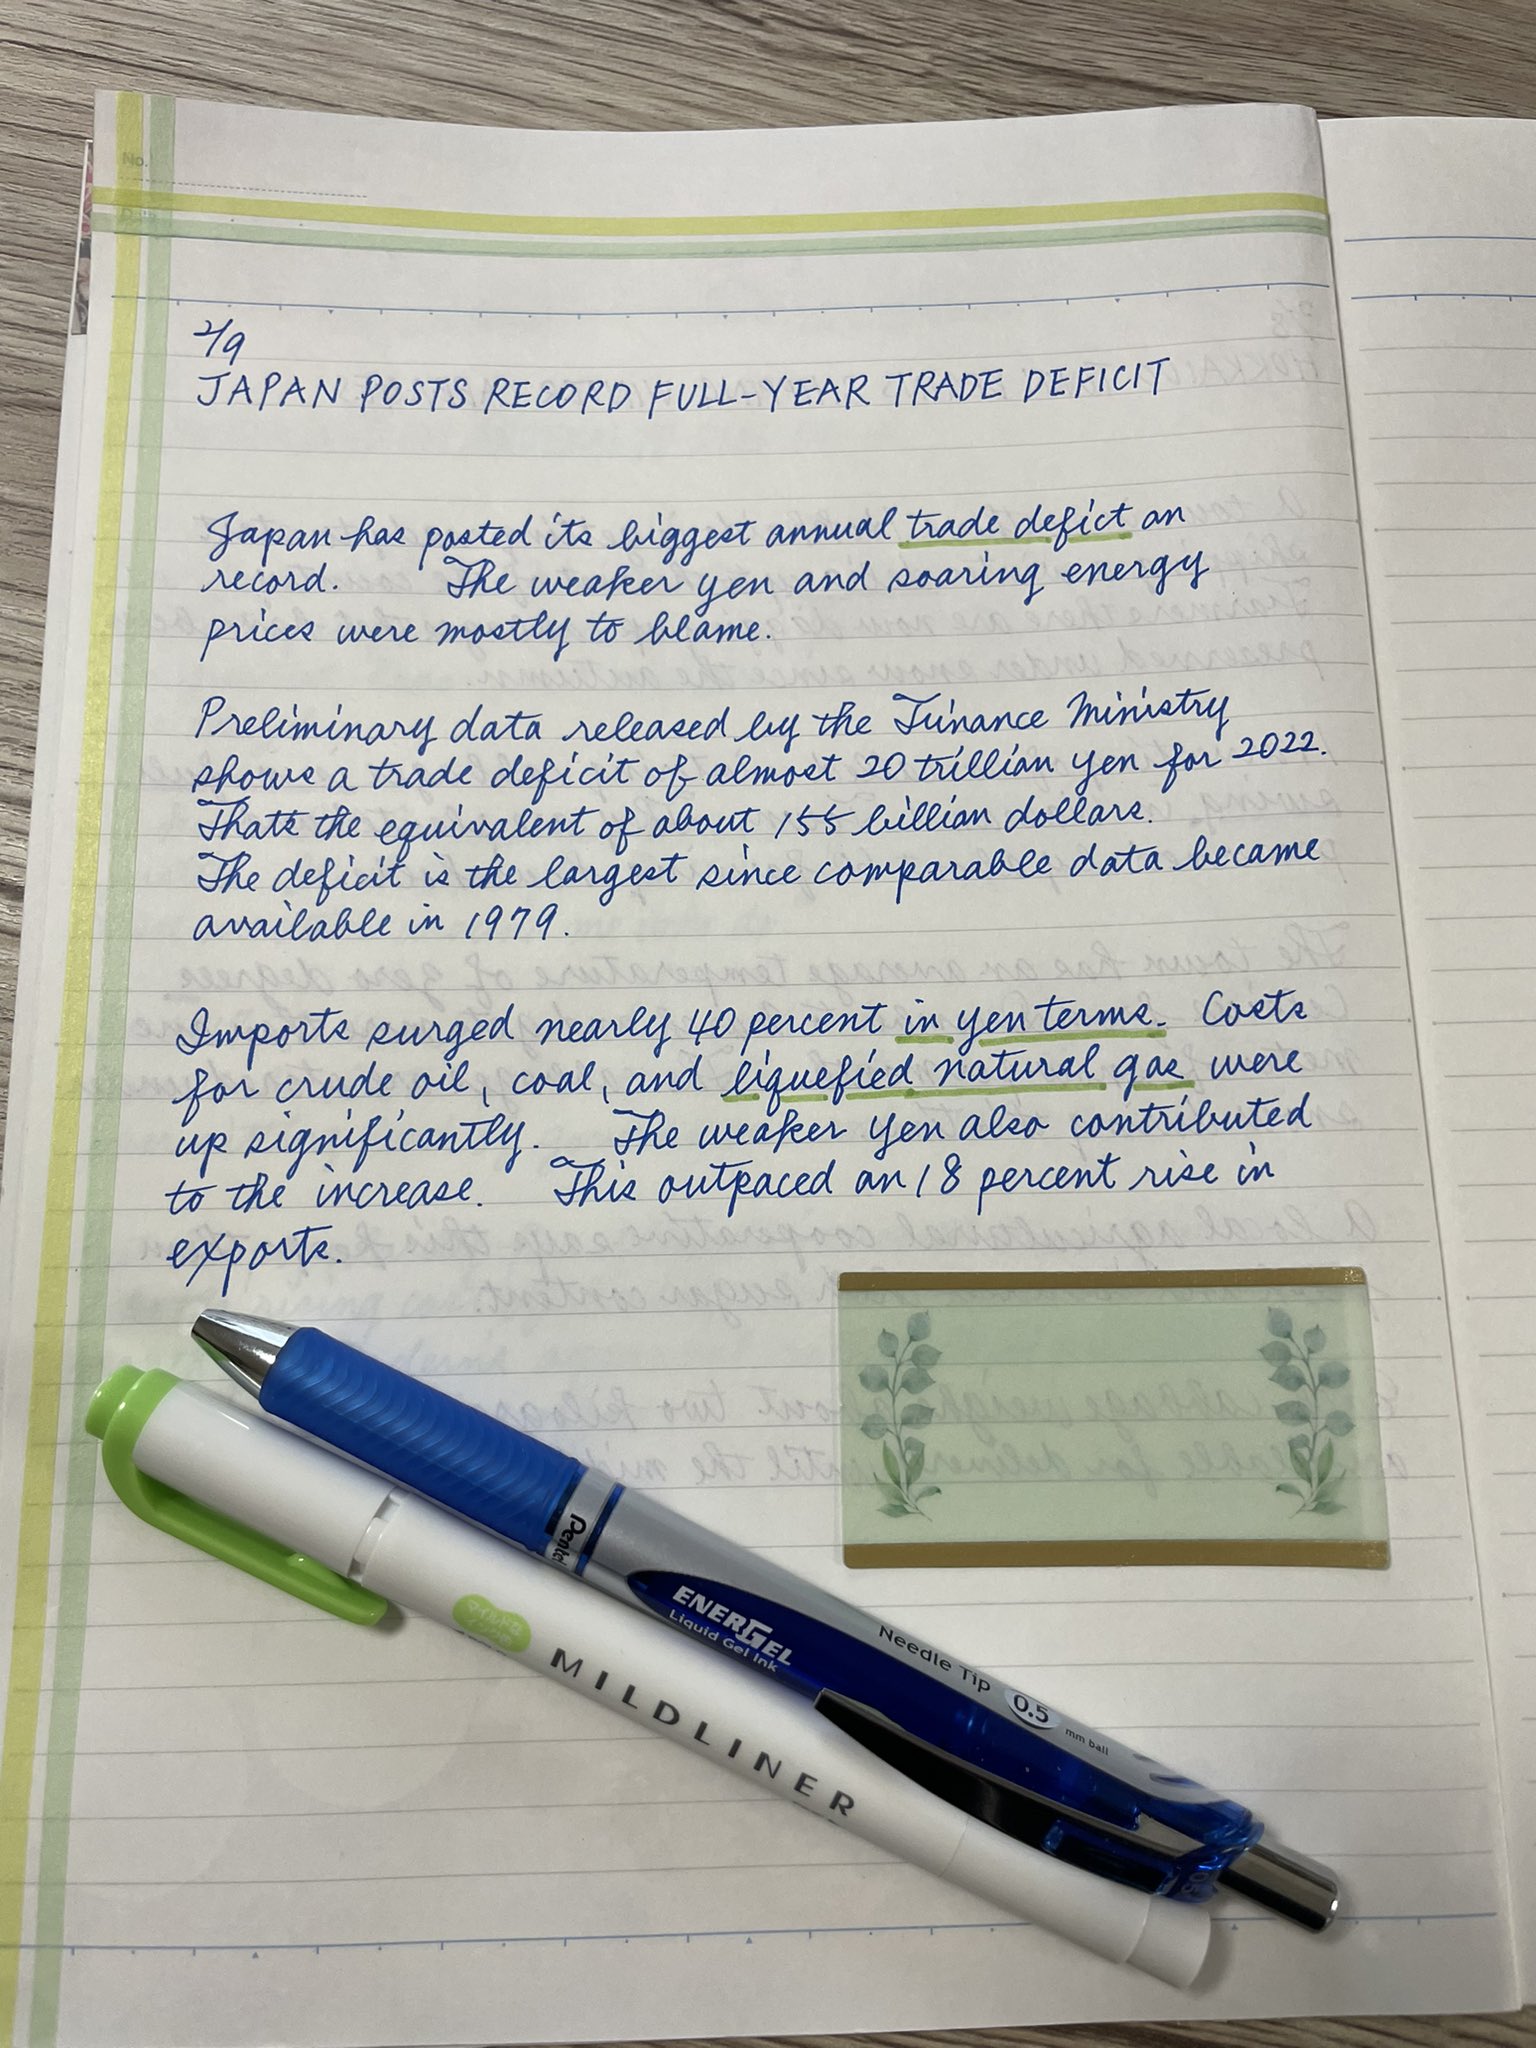 No.
Date
2/9
JAPAN POSTS RECORD FULL-YEAR TRADE DEFICIT
Japan has posted its biggest annual trade defict on
record. The weaker yen and soaring energy
prices were mostly to blame.
Preliminary data released by the Finance Ministry
shows a trade deficit of almost 20 trillian yen for 2022.
Thats the equivalent of about 155 billian dollars.
The deficit is the largest since comparable data became
available in 1979.
Imports surged nearly 40 percent in yen terms. Costs
for crude oil, coal, and liquefied natural gas were
up significantly. The weaker yen also contributed
to the increase. This outpaced an 18 percent rise in
exports.
Pentel
ENERGEL
Liquid Gel Ink
Needle Tip 0.5 mm ball
MILDLINER